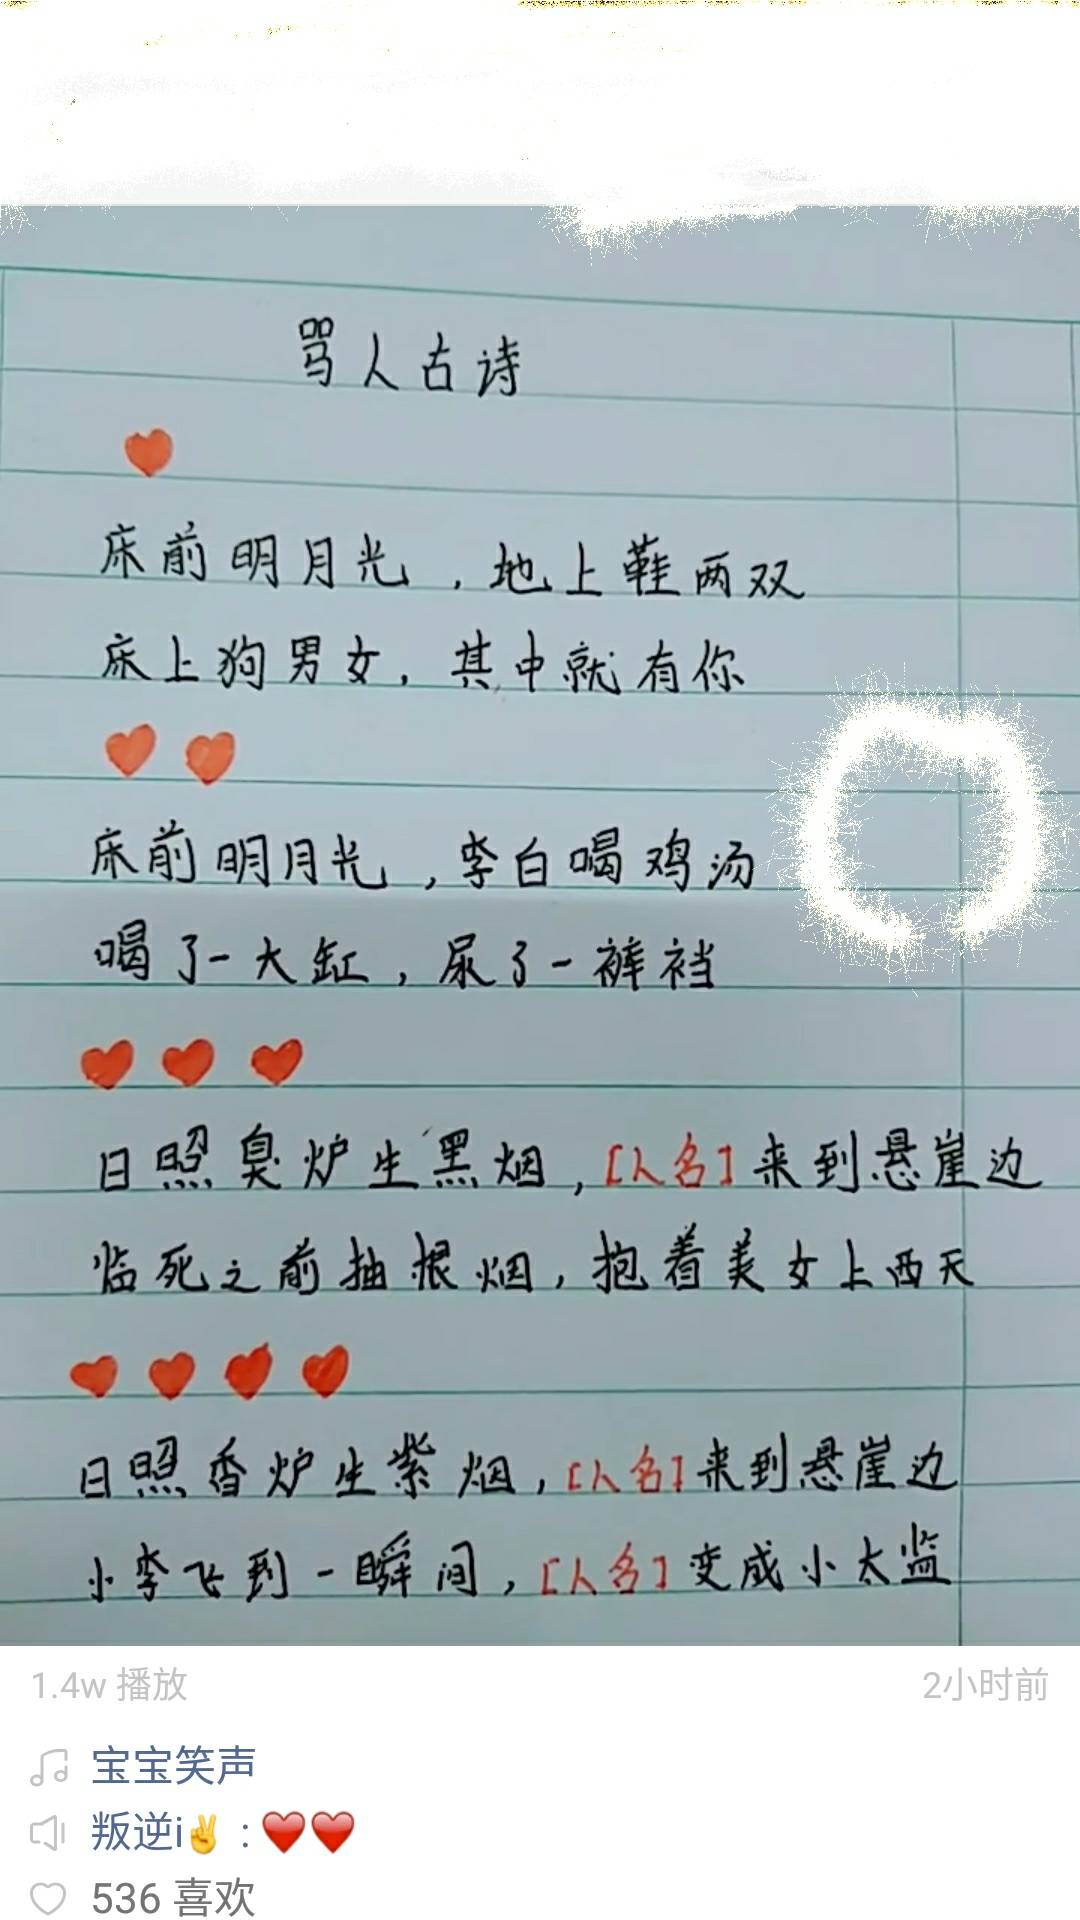 骂人古诗
床前明月光，地上鞋两双
床上狗男女，其中就有你
床前明月光，李白喝鸡汤
喝了一大缸，尿了一裤裆
日照臭炉生黑烟，[人名]来到悬崖边
临死之前抽根烟，抱着美女上西天
日照香炉生紫烟，[人名]来到悬崖边
小李飞到一瞬间，[人名]变成小太监
1.4w 播放
2小时前
宝宝笑声
叛逆i✌：❤❤
536 喜欢